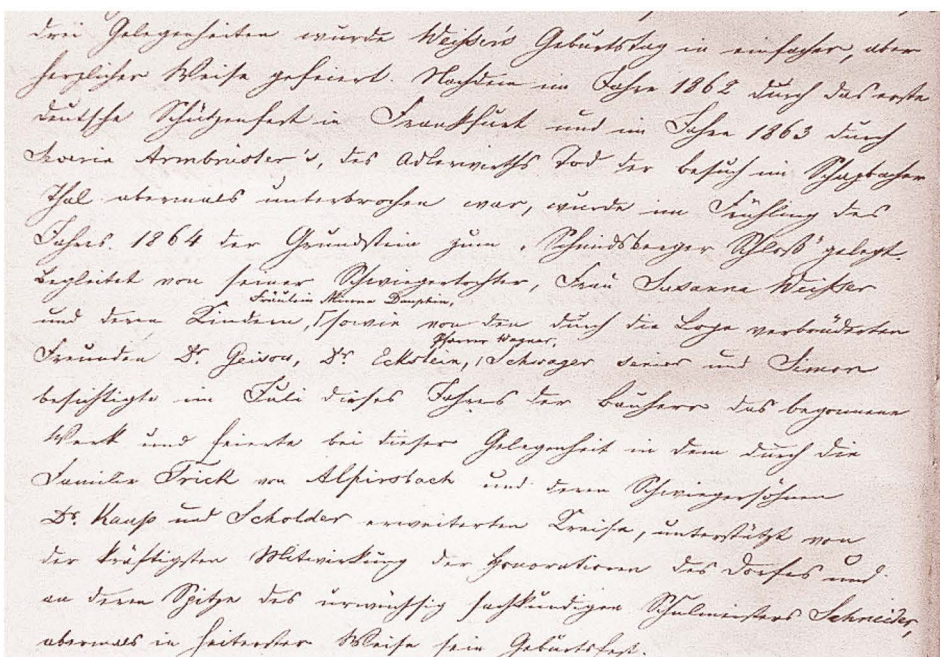 drei Gelegenheiten wurde Weißer's Geburtstag in einfacher, aber
herzlicher Weise gefeiert. Nachdem im Jahre 1862 durch das erste
deutsche Schützenfest in Frankfurt und im Jahre 1863 durch
Armbruster's, des Adlerwirths Tod der Besuch im Schapbacher
Thal abermals unterbrochen war, wurde im Frühling des
Jahres 1864 der Grundstein zum „Schmidsberger Schloß" gelegt.
Begleitet von seiner Schwiegertochter, Frau Susanna Weißer
Fräulein Minna
und deren Kindern, sowie von den durch die Loge verbrüderten
Pfarrer Wagner,
Freunden Dr. Dr. Eckstein, Schwager senior und Simon
besichtigte im Juli dieses Jahres der Bauherr das begonnene
Werk und feierte bei dieser Gelegenheit in dem durch die
Familie Trick von Alpirsbach und deren Schwiegersöhnen
Dr. Kaupp und Scholder erweiterten Kreise, unterstützt von
der kräftigsten Mitwirkung der Honoratioren des Dorfes und
an deren Spitze des urwüchsig sachkundigen Schulmeisters Schneider,
abermals in heiterster Weise sein Geburtsfest.